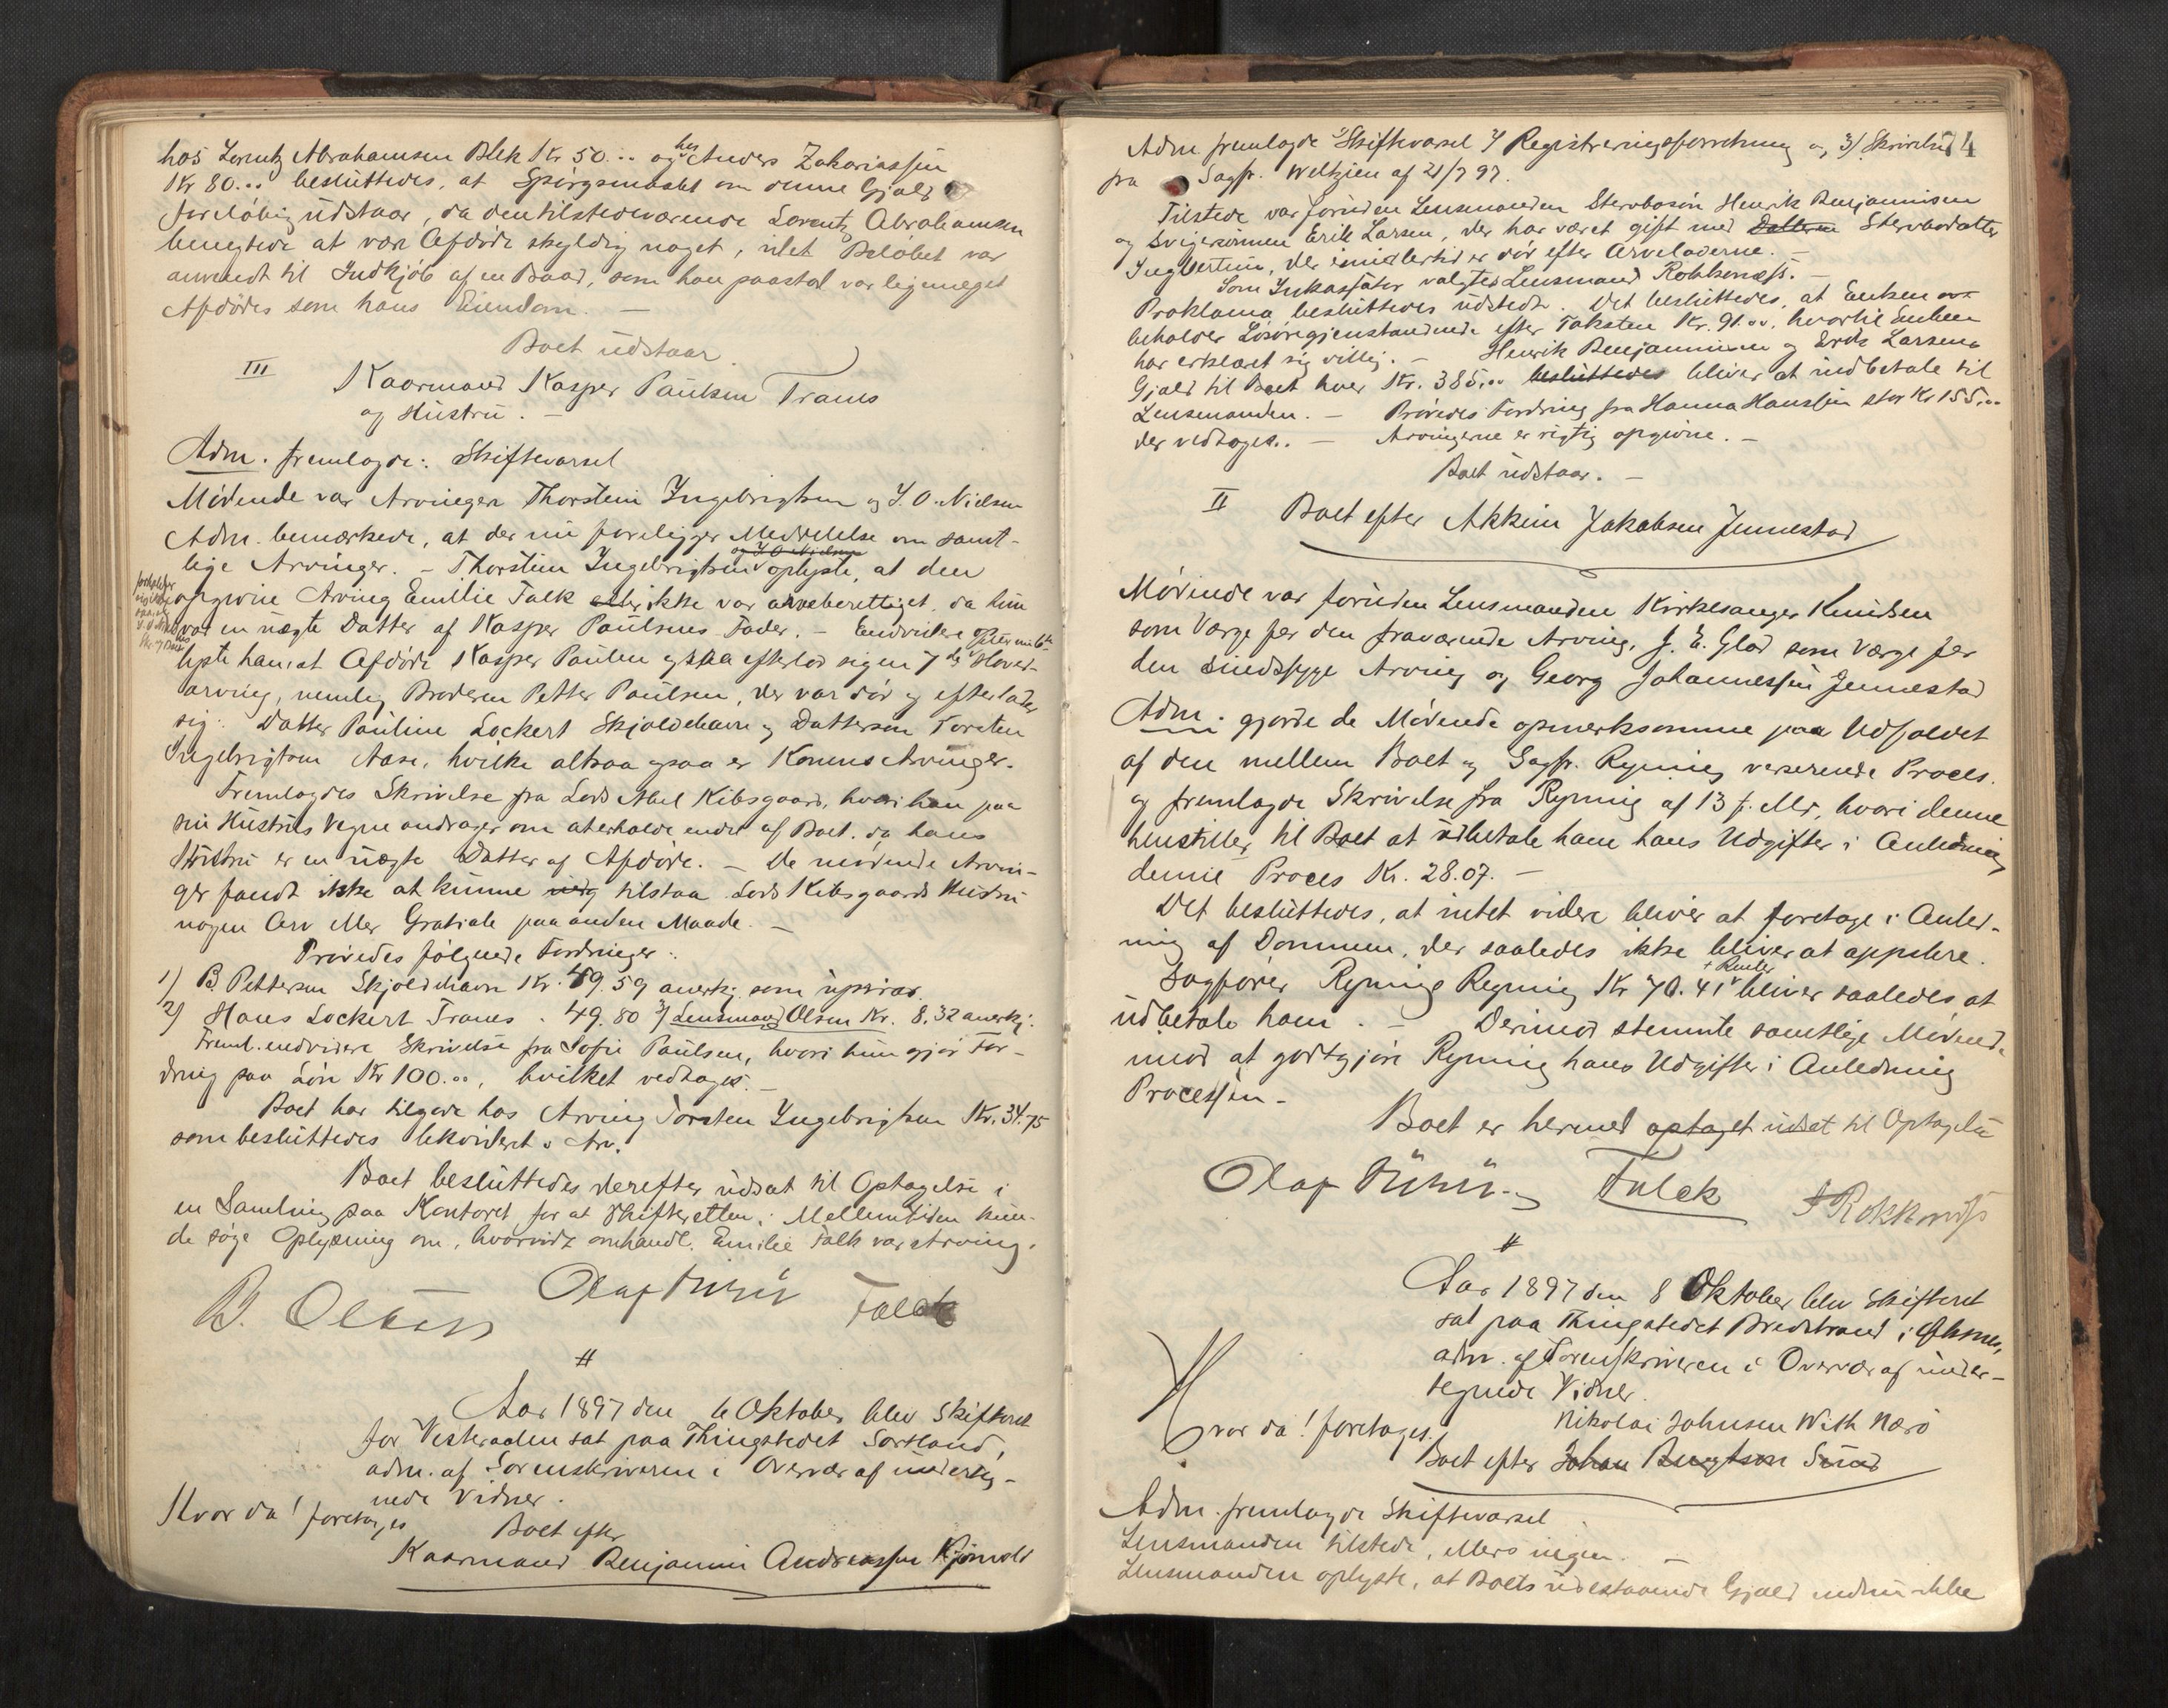 hos Lorentz Abrahamsen Blek Kr 50... og hos Anders Zakariassen
Kr 80... besluttedes, at Spørgsmaalet om denne Gjæld
foreløbig udstaar, da den tilstedeværende Lorentz Abrahamsen
benegtede at være Afdøde skyldig noget, idet Beløbet var
anvendt til Indkjøb af en Baad, som han paastod var ligemeget
Afdødes som hans Eiendom. —
Boet udstaar.
III
Kaarmand Kasper Paulsen Tranes
og Hustru. —
Adm. fremlagde: Skiftevarsel
Mødende var Arvingen Thorstein Ingebrigtsen og J. O. Nielsen
Adm. bemærkede, at der nu foreligger Meddelelse om samt-
lige Arvinger. - Thorstein Ingebrigtsen og J O Nielsen oplyste, at den
opgivne Arving Emilie Falk ikke var arveberettiget, da hun
var en uægte Datter af Kasper Paulsens Fader. - Endvidere op-
lyste han, at Afdøde Kasper Paulsen ogsaa efterlod sig en 7de Hoved-
arving, nemlig Broderen Petter Paulsen, der var død og efterlader
sig: Datter Pauline Lockert Skjoldehavn og Dattersøn Torsten
Ingebrigtsen Aase, hvilke altsaa ogsaa er Konens Arvinger.
Fremlagdes Skrivelse fra Lods Abel Kibsgaard, hvori han paa
sin Hustrus Vegne andrager om at erholde endel af Boet, da hans
Hustru er en uægte Datter af Afdøde. - De mødende Arvin-
ger fandt ikke at kunne tilstaa Lods Kibsgaards Hustru
nogen Arv eller Gratiale paa anden Maade. —
Prøvedes følgende Fordringer:
1) B. Pettersen Skjoldehavn Kr. 49.59 anerkj. som uprior.
2) Hans Lockert Tranes - 49.80 3) Lensmand Olsen Kr. 8.32 anerkj.
Freml. endvidere Skrivelse fra Sofie Paulsen, hvori hun gjør For-
dring paa Løn Kr 100..., hvilket vedtages. —
Boet har tilgode hos Arving Torsten Ingebrigtsen Kr. 34.75
som besluttedes likvideret i Arv.
Boet besluttedes derefter udsat til Optagelse i
en Samling paa Kontoret for at Skifteretten i Mellemtiden kun-
de søge Oplysning om, hvorvidt omhandl. Emilie Falk var Arving.
B. Olsen Olaf Falck
#
Aar 1897 den 6 Oktober blev Skifteret
for Vesteraalen sat paa Thingstedet Sortland,
adm. af Sorenskriveren i Overvær af underteg-
nede Vidner.
Hvor da! foretages
Boet efter
Kaarmand Benjamin Andreassen Kjørnold
74
Adm fremlagde 1) Skiftevarsel 2) Registreringsforretning og 3) Skrivelse
fra Sagfr. Weltzien af 21/7 97.
Tilstede var foruden Lensmanden Stervbosøn Henrik Benjaminsen
og Svigersønnen Erik Larsen, der har været gift med Datteren Stervbodatter
Ingbertine, der imidlertid er død efter Arveladerne. —
Som Inkassator valgtes Lensmand Rokkones. —
Proklama besluttedes udstedt. Det besluttedes, at Enken
beholder Løsøregjenstandene efter Taksten Kr. 91..., hvortil Enken
har erklæret sig villig. - Henrik Benjaminsen og Erik Larsens
Gjæld til Boet hver Kr. 385,... besluttedes bliver at indbetale til
Lensmanden. - Prøvedes Fordring fra Hanna Hanssen stor Kr 155,...
der vedtoges. - Arvingerne er rigtig opgivne. —
Boet udstaar. —
II
Boet efter Akkim Jakobsen Jennestad
Mødende var foruden Lensmanden Kirkesanger Knudsen
som Værge for den fraværende Arving, J. E. Glad som Værge for
den sindssyge Arving og Georg Johannessen Jennestad
Adm. gjorde de Mødende opmerksomme paa Udfaldet
af den mellem Boet og Sagfr. Ryning verserende Proces.
og fremlagde Skrivelse fra Ryning af 13 f. M., hvori denne
henstiller til Boet at udbetale ham hans Udgifter i Anledning
denne Proces Kr. 28.07. —
Det besluttedes, at intet videre bliver at foretage i Anled-
ning af Dommen, der saaledes ikke bliver at appellere.
Sagfører Rynings Regning Kr 70.41 + Renter bliver saaledes at
udbetale ham. — Derimod stemte samtlige Mødende
mod at godtgjøre Ryning hans Udgifter i Anledning
Processen -
Boet er hermed optaget udsat til Optagelse
Olaf Falck Rokkones
#
Aar 1897 den 8 Oktober blev Skifteret
sat paa Thingstedet Bredstrand i Øksnes,
adm. af Sorenskriveren i Overvær af under-
tegnede Vidner.
Hvor da! foretages.
Nikolai Johnsen With Nærø
Boet efter Johan Bengtson Sund
Adm. fremlagde Skiftevarsel.
Lensmanden tilstede, ellers ingen. —
Lensmanden oplyste, at Boets udestaaende Gjæld endnu ikke